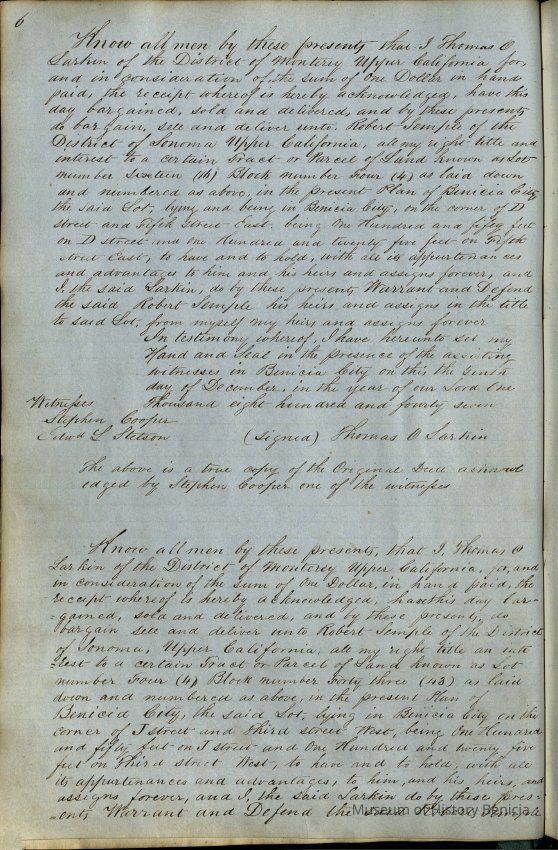 6
Know all men by these presents that I Thomas O
Larkin of the District of Monterey Upper California for
and in consideration of the sum of One Dollar in hand
paid, the receipt whereof is hereby acknowledged, have this
day bargained, sold and delivered, and by these presents
do bargain, sell and deliver unto Robert Semple of the
District of Sonoma Upper California, all my right title and
interest to a certain Tract or Parcel of Land known as Lot
number Sixteen (16) Block number Four (4) as laid down
and numbered as above, in the present Plan of Benicia City
the said Lot, lying and being in Benicia City, on the corner of D
street and Fifth Street East, being One Hundred and fifty feet
on D street and One Hundred and twenty five feet on Fifth
street East, to have and to hold, with all its appurtenances
and advantages to him and his heirs and assigns forever, and
I, the said Larkin, do by these presents Warrant and Defend
the said Robert Semple his heirs and assigns in the title
to said Lot, from myself my heirs and assigns forever
In testimony whereof, I have hereunto set my
Hand and Seal in the presence of the assisting
witnesses in Benicia City on this the tenth
day of December, in the year of our Lord One
Witnesses Thousand eight hundred and fourty seven
Stephen Cooper
Edwd L Stetson (Signed) Thomas O Larkin
The above is a true copy of the Original Deed acknowl
edged by Stephen Cooper one of the witnesses
Know all men by these presents, that I, Thomas O
Larkin of the District of Monterey Upper California, for, and
in consideration of the sum of One Dollar, in hand paid, the
receipt whereof is hereby acknowledged, have this day bar-
-gained, sold and delivered, and by these presents, do
bargain sell and deliver unto Robert Semple of the District
of Sonoma, Upper California, all my right title an inte
-rest to a certain Tract or Parcel of Land known as Lot
number Four (4) Block number Forty three (43) as laid
down and numbered as above, in the present Plan of
Benicia City, the said Lot, lying in Benicia City on the
corner of I street and Third street West, being One Hundred
and fifty feet on I street and One Hundred and twenty five
feet on Third street West, to have and to hold, with all
its appurtenances and advantages, to him, and his heirs, and
assigns forever, and I, the said Larkin do by these pres-
-ents Warrant and Defend the said Robert Semple
Museum of History Benicia